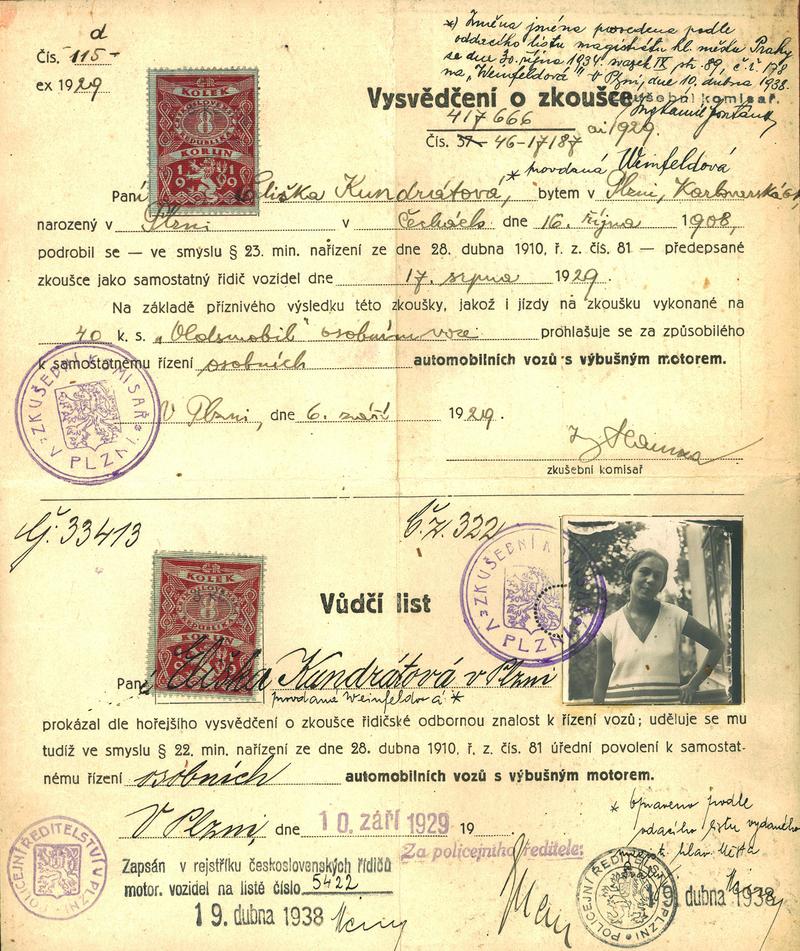 d
Čís. 115-
ex 1929
*) Změna jména provedena podle
oddacího listu magistrátu hl. města Prahy
ze dne 30. října 1934. svazek IX str. 89, č. ř. 178
na „Weinfeldová" V Plzni, dne 10. dubna 1938.
Vysvědčení o zkoušce
zkušební komisař.
417666
Čís. 37 46-17187 ai 1929.
* provdaná Weinfeldová
KOLEK
8
KORUN
1919
Paní Eliška Kundrátová, bytem v Plzni, Karlovarská
narozený v Plzni v Čechách dne 16. října 1908,
podrobil se — ve smyslu § 23. min. nařízení ze dne 28. dubna 1910, ř. z. čís. 81 — předepsané
zkoušce jako samostatný řidič vozidel dne 17. srpna 1929.
Na základě příznivého výsledku této zkoušky, jakož i jízdy na zkoušku vykonané na
40 k. s. „Oldsmobil" osobním voze prohlašuje se za způsobilého
k samostatnému řízení osobních automobilních vozů s výbušným motorem.
ZKUŠEBNÍ KOMISAŘ V PLZNI
V Plzni, dne 6. září 1929.
zkušební komisař
Čj. 33413
Č. ž. 322
KOLEK
8
ZKUŠEBNÍ KOMISAŘ V PLZNI
Vůdčí list
Paní Eliška Kundrátová v Plzni
provdaná Weinfeldová *
prokázal dle hořejšího vysvědčení o zkoušce řidičské odbornou znalost k řízení vozů; uděluje se mu
tudíž ve smyslu § 22. min. nařízení ze dne 28. dubna 1910, ř. z. čís. 81 úřední povolení k samostat-
nému řízení osobních automobilních vozů s výbušným motorem.
* Opraveno podle
oddacího listu vydaného
V Plzni, dne 10. září 1929 19
Za policejního ředitele:
POLICEJNÍ ŘEDITELSTVÍ V PLZNI
Zapsán v rejstříku československých řidičů
motor. vozidel na listě číslo 5422
19. dubna 1938
POLICEJNÍ ŘEDITELSTVO V PLZNI
dubna 1938